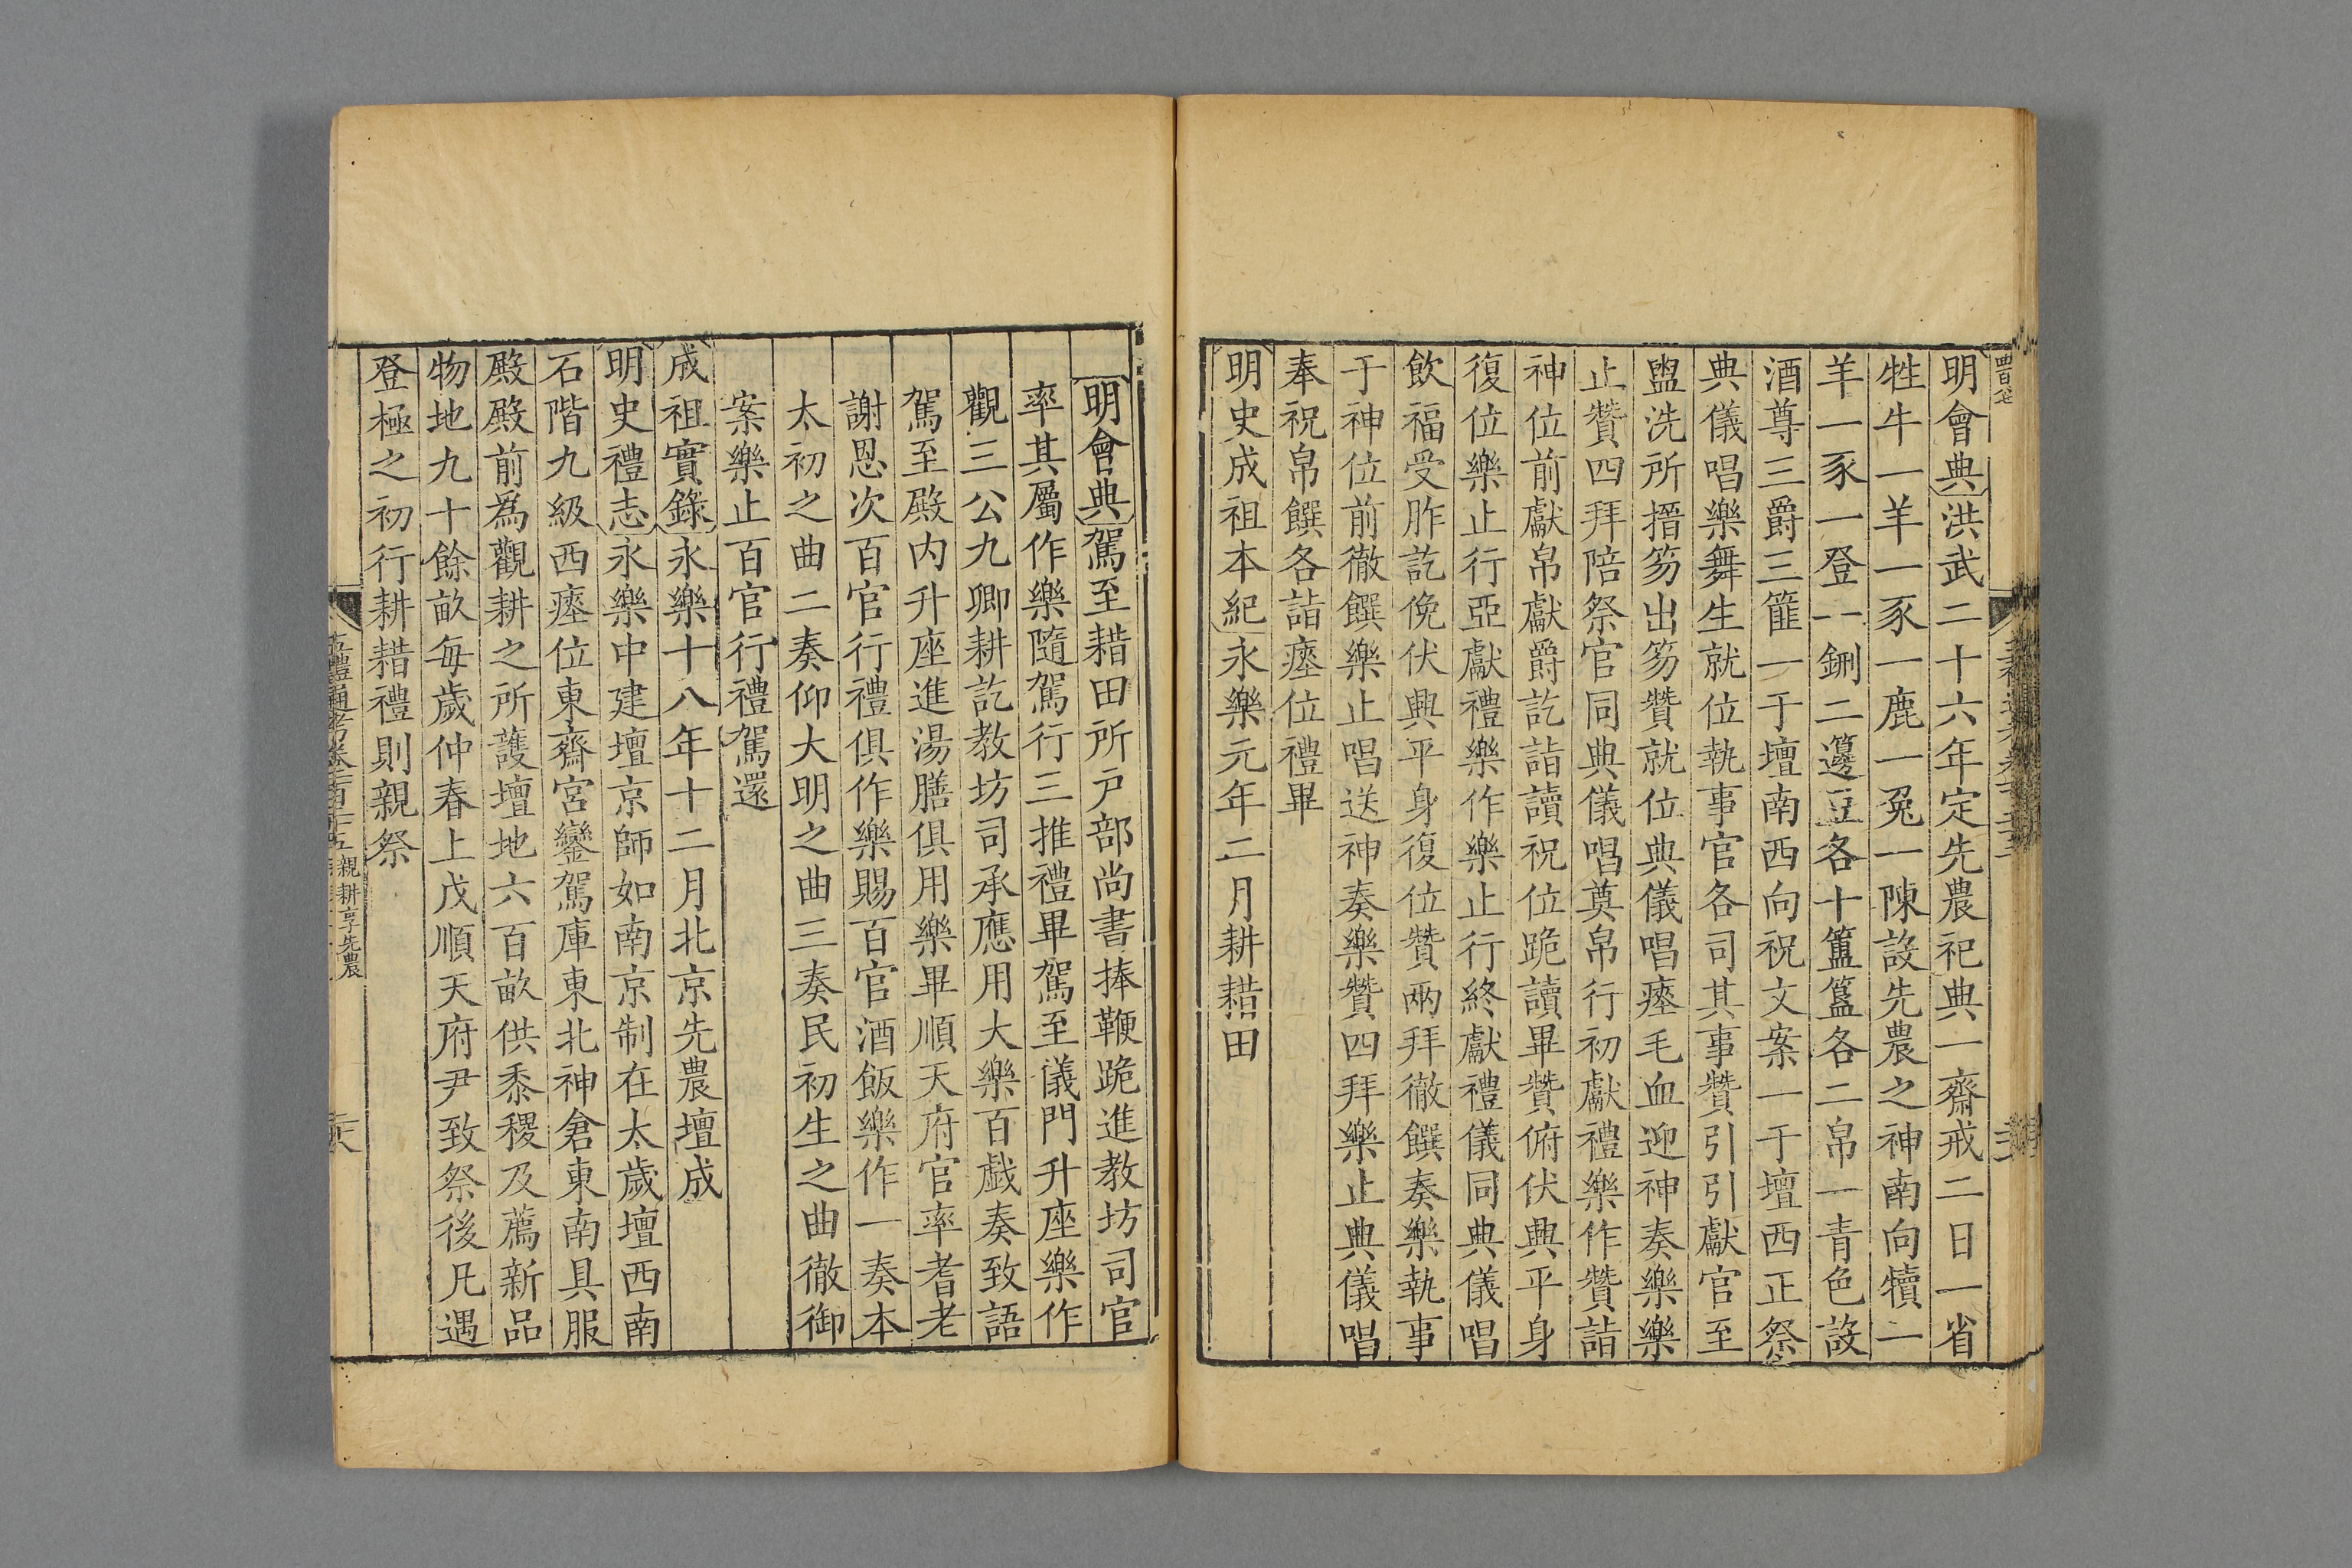 明會典洪武二十六年定先農祀典一齋戒二日一省
牲牛一羊一豕一鹿一兔一陳設先農之神南向犢一
羊一豕一登一鉶二籩豆各十簠簋各二帛一青色設
酒尊三爵三篚一于壇南西向祝文案一于壇西正祭
典儀唱樂舞生就位執事官各司其事贊引引獻官至
盥洗所搢笏出笏贊就位典儀唱瘞毛血迎神奏樂樂
止贊四拜陪祭官同典儀唱奠帛行初獻禮樂作贊詣
神位前獻帛獻爵訖詣讀祝位跪讀畢贊俯伏興平身
復位樂止行亞獻禮樂作樂止行終獻禮儀同典儀唱
飲福受胙訖俛伏興平身復位贊兩拜徹饌奏樂執事
于神位前徹饌樂止唱送神奏樂贊四拜樂止典儀唱
奉祝帛饌各詣瘞位禮畢
明史成祖本紀永樂元年二月耕耤田
明會典駕至耤田所戶部尚書捧鞭跪進教坊司官
率其屬作樂隨駕行三推禮畢駕至儀門升座樂作
觀三公九卿耕訖教坊司承應用大樂百戲奏致語
駕至殿內升座進湯膳俱用樂畢順天府官率耆老
謝恩次百官行禮俱作樂賜百官酒飯樂作一奏本
太初之曲二奏仰大明之曲三奏民初生之曲徹御
案樂止百官行禮駕還
成祖實錄永樂十八年十二月北京先農壇成
明史禮志永樂中建壇京師如南京制在太歲壇西南
石階九級西瘞位東齋宮鑾駕庫東北神倉東南具服
殿殿前爲觀耕之所護壇地六百畝供黍稷及薦新品
物地九十餘畝每歲仲春上戊順天府尹致祭後凡遇
登極之初行耕耤禮則親祭
五禮通考卷一百二十五 親耕享先農